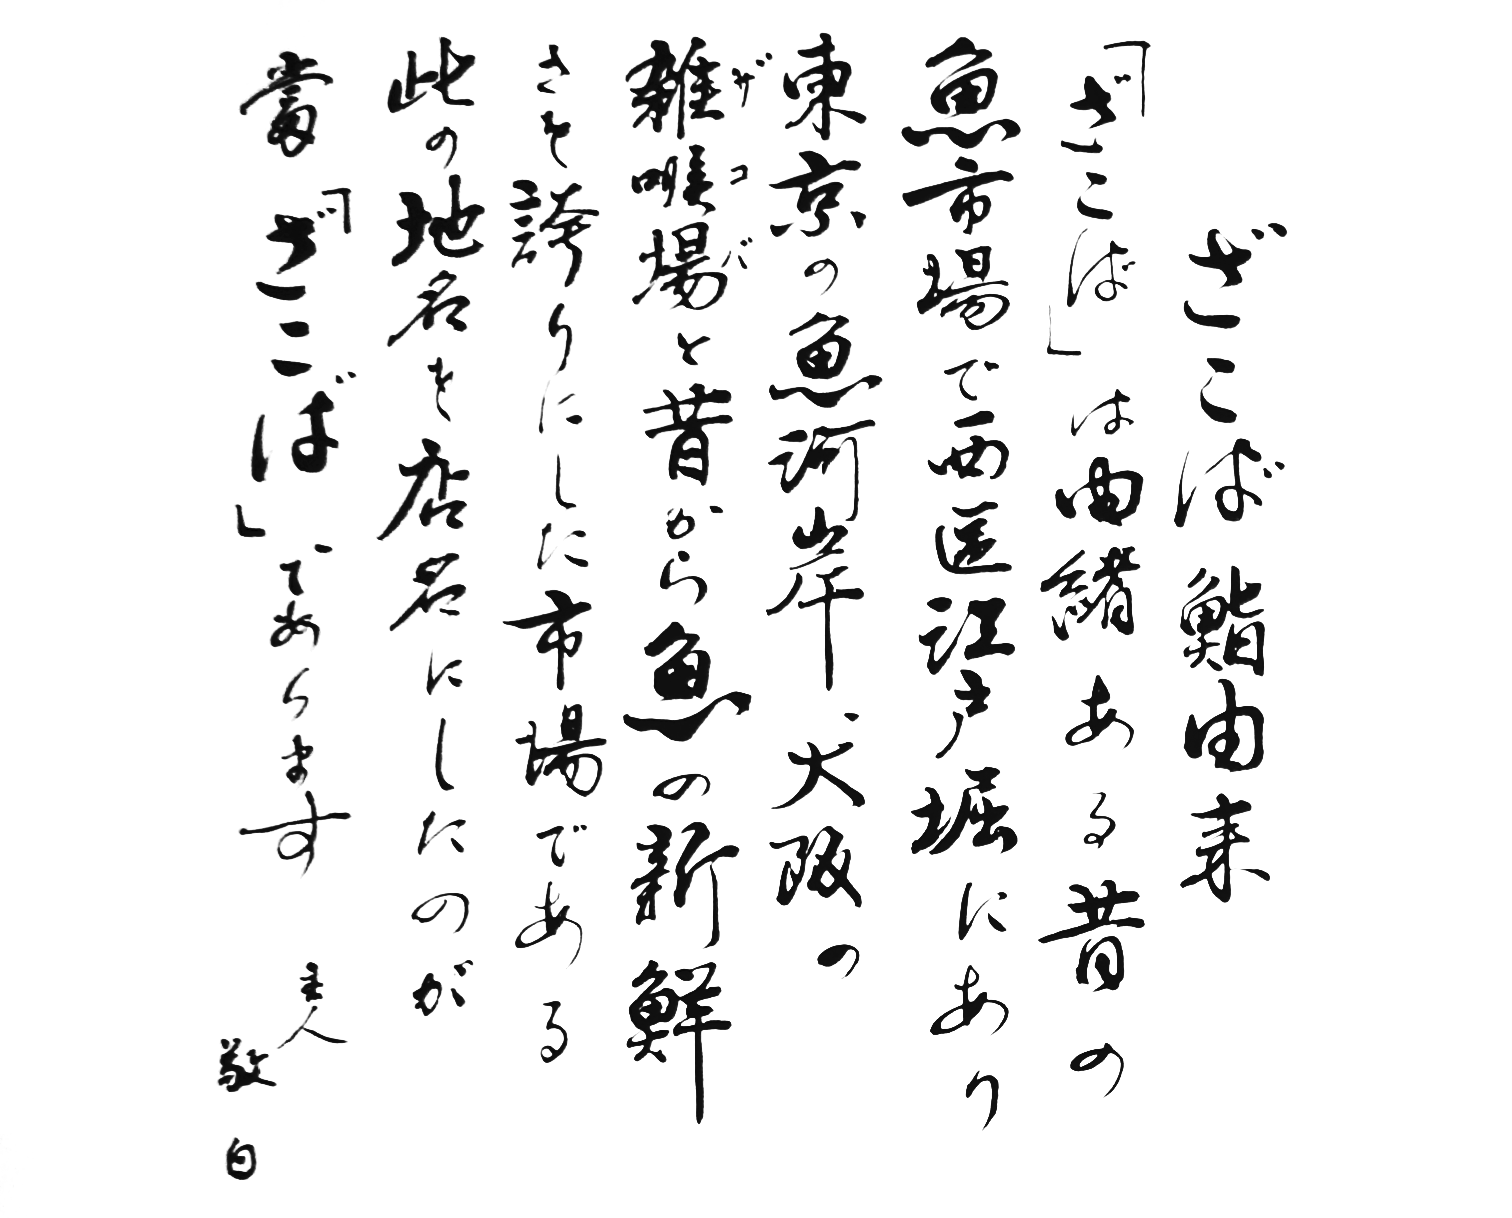 ざこば鮨由来
「ざこば」は由緒ある昔の
魚市場で西区江戸堀にあり
東京の魚河岸、大阪の
雑喉場と昔から魚の新鮮
ザコバ
さを誇りにした市場である
此の地名を店名にしたのが
當「ざこば」であります
主人
敬白